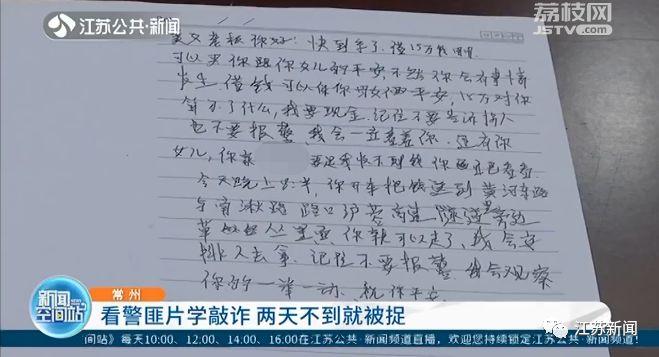 江苏公共·新闻
荔枝网
JSTV.com
老板你好! 快到年了, 借15万我用用.
可以买你跟你女儿的平安, 不然你会有事情
发生. 借钱可以保你母女俩平安, 15万对你
算不了什么, 我要现金. 记住不要告诉别人
也不要报警 我会一直看着你. 还有你
女儿, 你就
今天晚上8:半, 你开车把钱送到黄河东路
路口沪蓉高速 旁边
草丛里面 你就可以走了, 我会安
排人去拿. 记住不要报警 我会观察
你的一举一动. 祝你平安.
常州
新闻空间站
看警匪片学敲诈 两天不到就被捉
江苏新闻
间站》每天10:00、12:00、14:00、16:00在江苏公共·新闻频道直播, 欢迎您持续锁定江苏公共·新闻频道